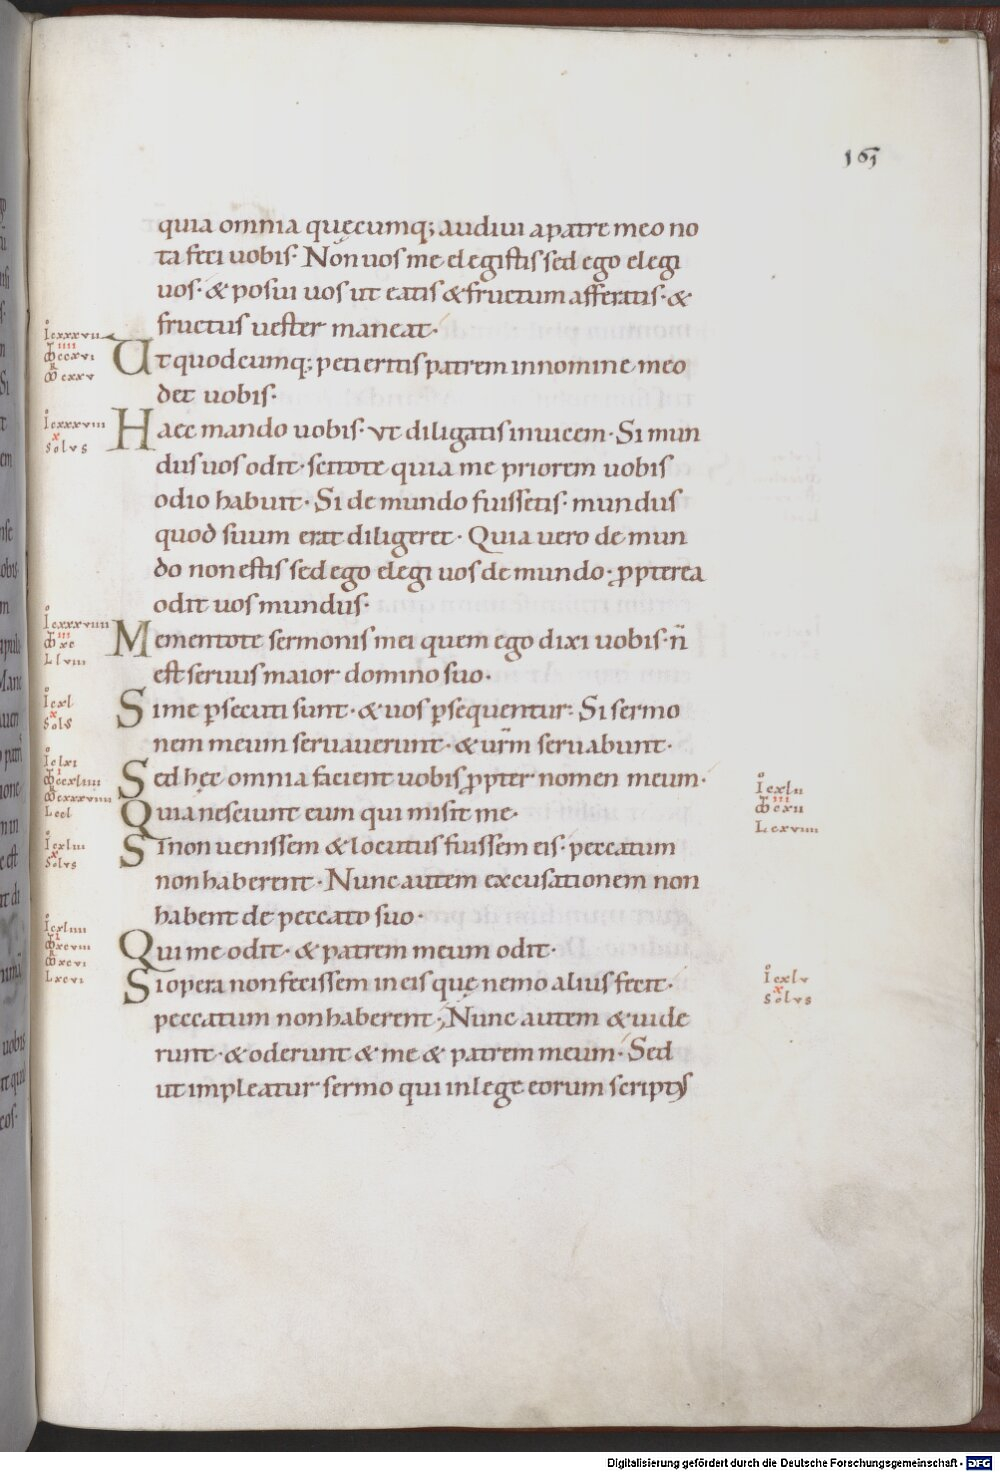 165
quia omnia quęcumq; audiui apatre meo no
ta feci uobis· Non uos me elegistis sed ego elegi
uos· & posui uos ut eatis & fructum afferatis· &
fructus uester maneat·
Ut quodcumq; petieritis patrem innomine meo
det uobis·
Haec mando uobis· ut diligatis inuicem· Si mun
dus uos odit· scitote quia me priorem uobis
odio habuit· Si de mundo fuissetis· mundus
quod suum erat diligeret· Quia uero de mun
do non estis sed ego elegi uos de mundo· ꝓpterea
odit uos mundus·
Mementote sermonis mei quem ego dixi uobis· n̄
est seruus maior domino suo·
Si me ꝑsecuti sunt· & uos ꝑsequentur· Si sermo
nem meum seruauerunt· & ur̄m seruabunt·
Sed hęc omnia facient uobis ꝓpter nomen meum·
Quia nesciunt eum qui misit me·
Si non uenissem & locutus fuissem eis· peccatum
non haberent· Nunc autem excusationem non
habent de peccato suo·
Qui me odit· & patrem meum odit·
Si opera non fecissem in eis quę nemo alius fecit·
peccatum non haberent; Nunc autem & uide
runt· & oderunt & me & patrem meum· Sed
ut impleatur sermo qui in lege eorum scriptus
Io cxxxvii
Io cxxxviii
x
solus
Io cxxxviiii
iii
L lviii
Io cxl
x
solus
Io clxi
L ccl
Io cxliii
x
solus
Io cxliiii
L xcvi
Io cxlii
iii
L cxviiii
Io cxlv
x
solus
Digitalisierung gefördert durch die Deutsche Forschungsgemeinschaft - DFG